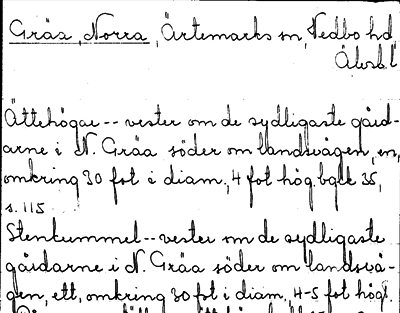 Gräa, Norra, Ärtemarks sn, Vedbo hd
Älvsb. l
Ättehögar -- vester om de sydligaste gård-
arne i N. Gräa söder om landsvägen, en,
omkring 30 fot i diam., 4 fot hög. bglk 35,
s. 115
Stenkummel -- vester om de sydligaste
gårdarne i N. Gräa söder om landsvä-
gen, ett, omkring 30 fot i diam., 4-5 fot högt.